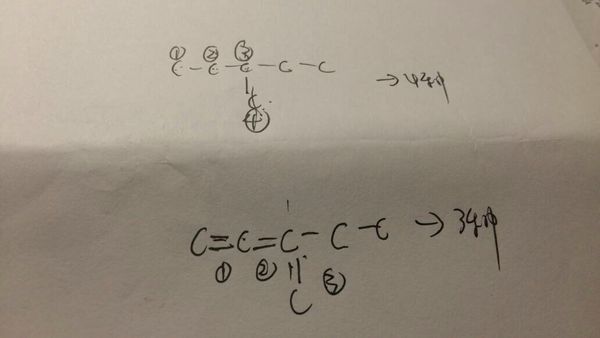 ① ② ③
C - C - C - C - C → 4种
|
C
④
C = C = C - C - C → 3种
① ② || ③
C